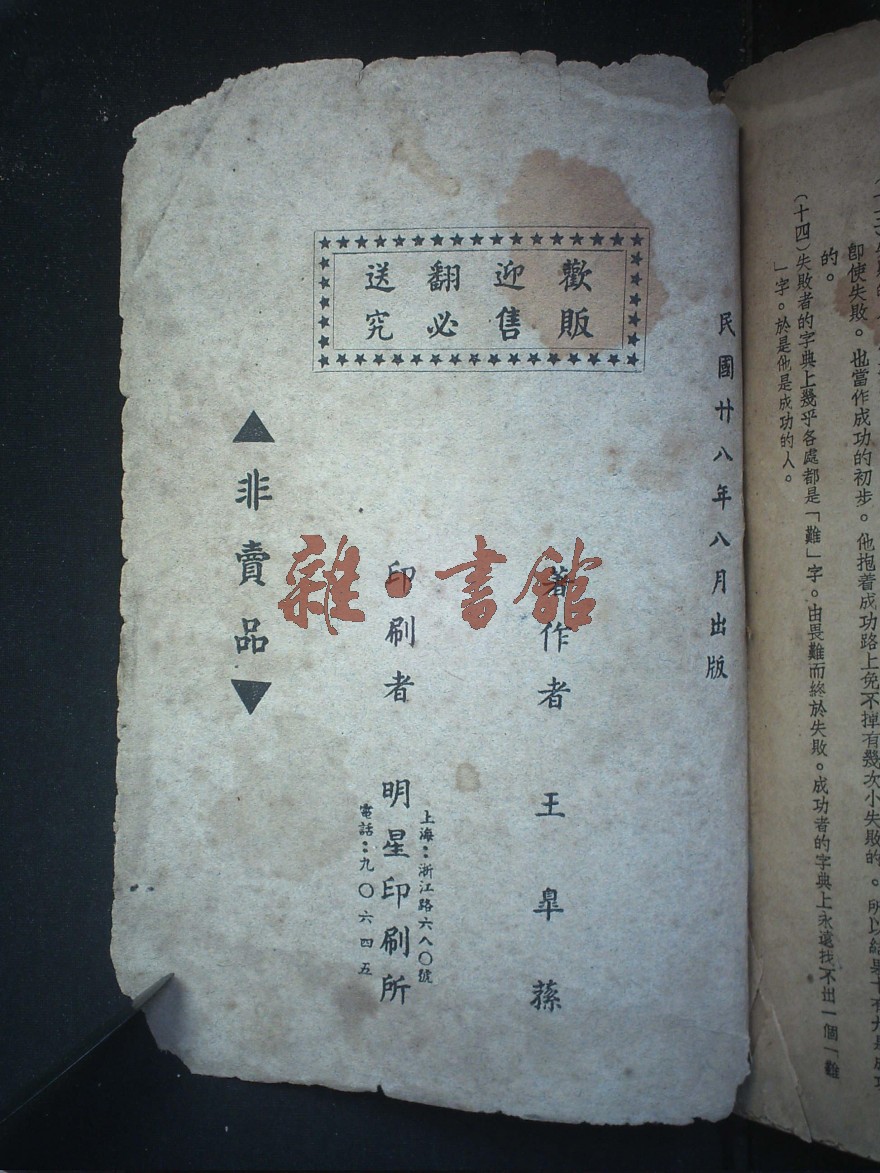 即使失敗。也當作成功的初步。他抱着成功路上免不掉有幾次小失敗的。所以結果十有九是成功
的。
(十四)失敗者的字典上幾乎各處都是「難」字。由畏難而終於失敗。成功者的字典上永遠找不出一個「難
」字。於是他是成功的人。
民國廿八年八月出版
歡迎翻送
販售必究
著作者 王皐蓀
印刷者 明星印刷所
上海：浙江路六八〇號
電話：九〇六四五
非賣品
雜·書館